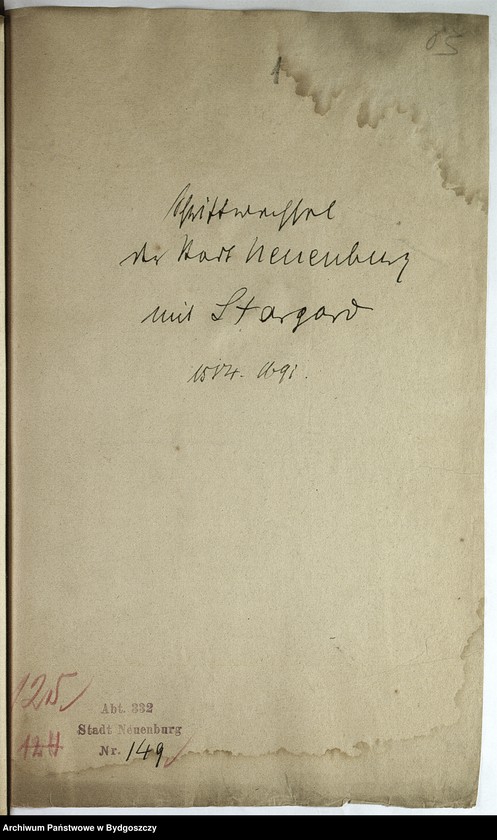 05
Schriftwechsel
der Stadt Neuenburg
mit Stargard
1514. 1691.
125
124
Abt. 332
Stadt Neuenburg
Nr. 149
Archiwum Państwowe w Bydgoszczy